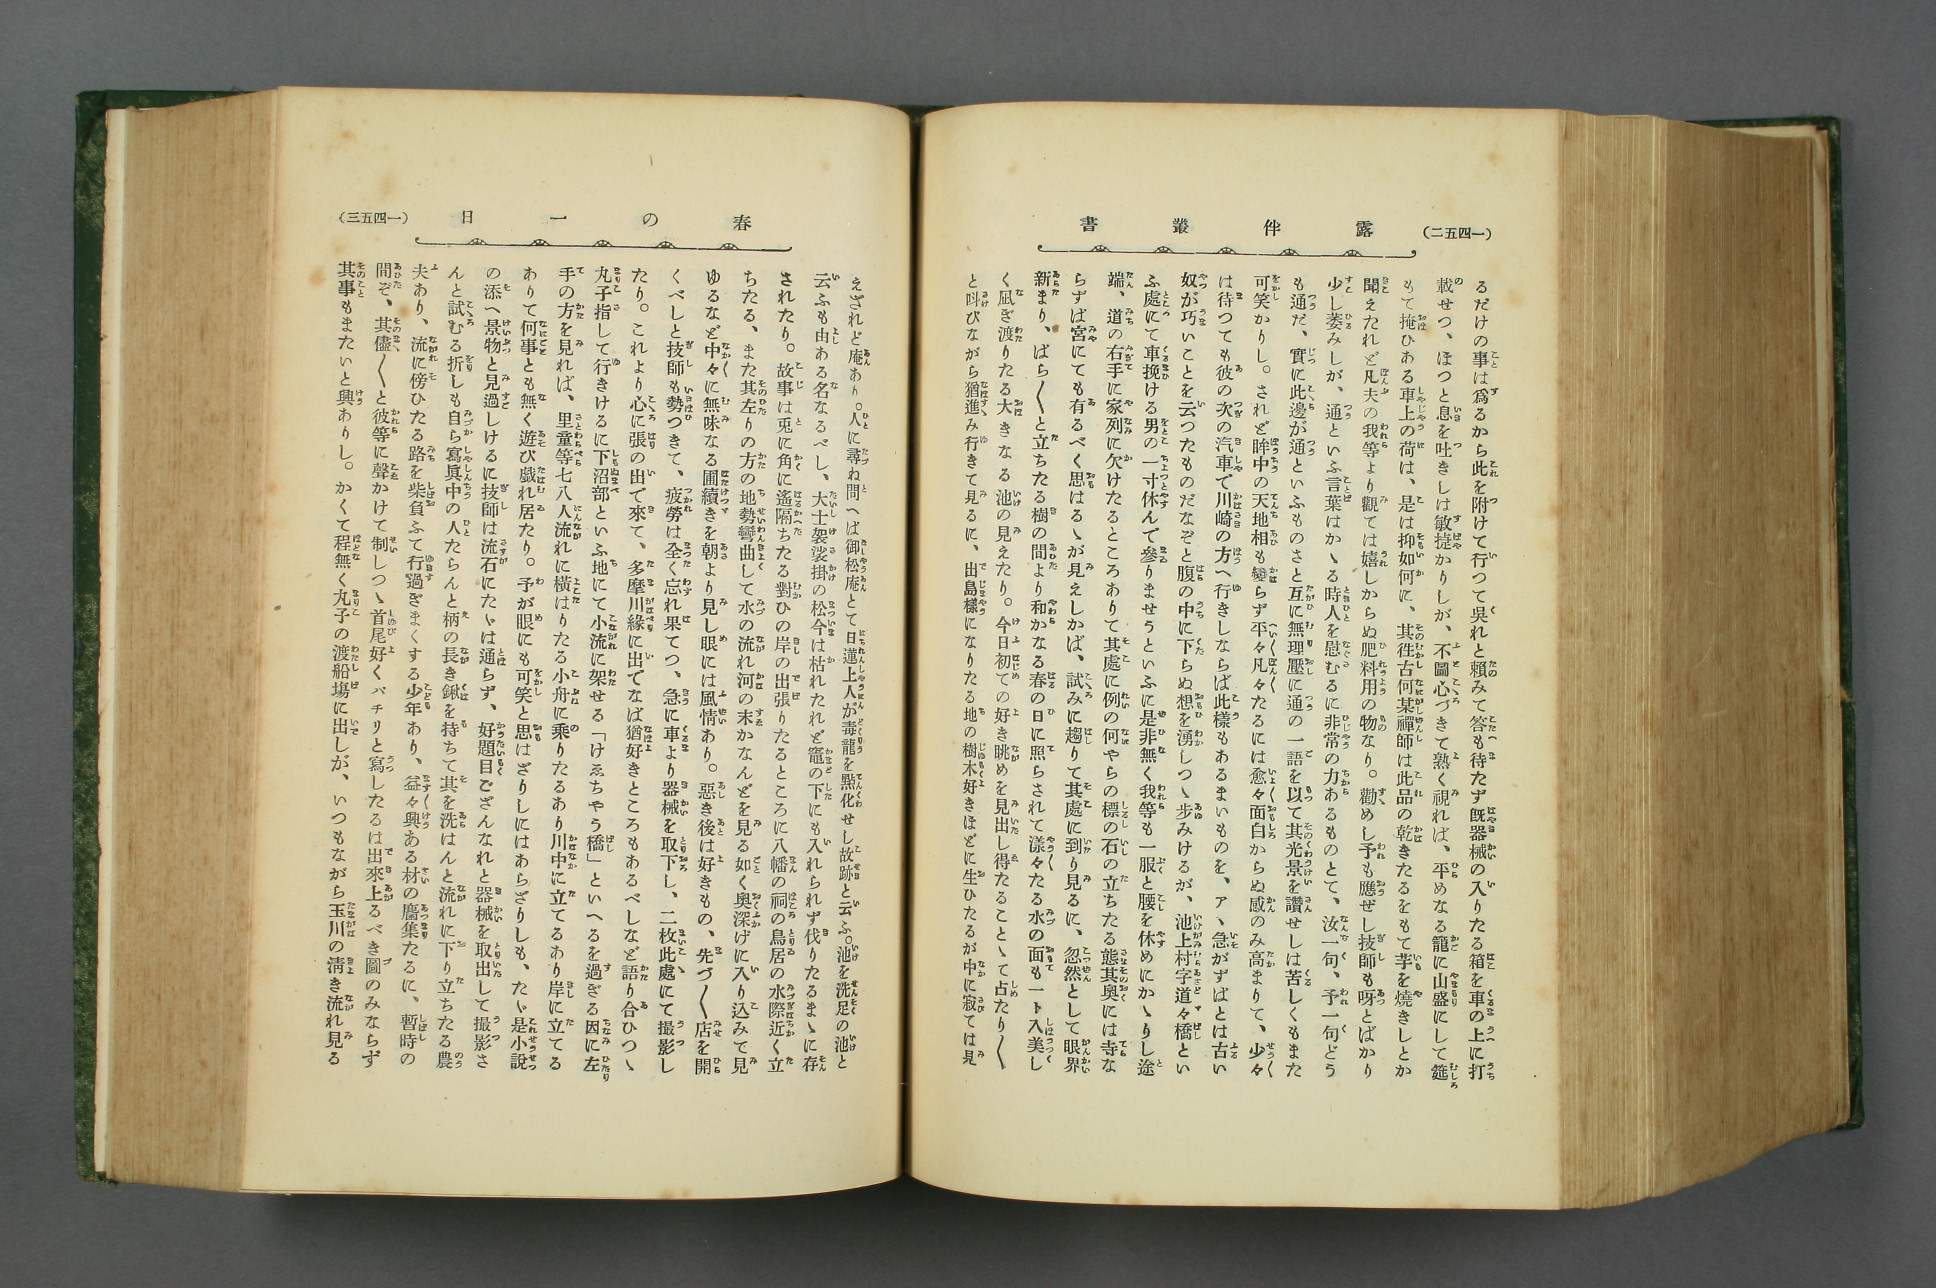 (一四五二)
露伴叢書
るだけの事は爲るから此を附けて行つて吳れと頼みて答も待たず既器械の入りたる箱を車の上に打
載せつ、ほつと息を吐きしは敏捷かりしが、不圖心づきて熟く視れば、平めなる籠に山盛にして筵
もて掩ひある車上の荷は、是は抑如何に、其徃古何某禪師は此品の乾きたるをもて芋を燒きしとか
聞えたれど凡夫の我等より觀ては嬉しからぬ肥料用の物なり。勸めし予も應ぜし技師も呀とばかり
少し萎みしが、通といふ言葉はかゝる時人を慰むるに非常の力あるものとて、汝一句、予一句どう
も通だ、實に此邊が通といふものさと互に無理壓に通の一語を以て其光景を讚せしは苦しくもまた
可笑かりし。されど眸中の天地相も變らず平々凡々たるには愈々面白からぬ感のみ高まりて、少々
は待つても彼の次の汽車で川崎の方へ行きしならば此樣もあるまいものを、アヽ急がずばとは古い
奴が巧いことを云つたものだなぞと腹の中に下らぬ想を湧しつゝ步みけるが、池上村字道々橋とい
ふ處にて車挽ける男の一寸休んで參りませうといふに是非無く我等も一服と腰を休めにかゝりし途
端、道の右手に家列に欠けたるところありて其處に例の何やらの標の石の立ちたる態其奥には寺な
らずば宮にても有るべく思はるゝが見えしかば、試みに趨りて其處に到り見るに、忽然として眼界
新まり、ばら〱と立ちたる樹の間より和かなる春の日に照らされて漾々たる水の面も一ト入美し
く凪ぎ渡りたる大きなる池の見えたり。今日初めての好き眺めを見出し得たることゝて占たり〱
と叫びながら猶進み行きて見るに、出島樣になりたる地の樹木好きほどに生ひたるが中に寂ては見
(一四五三)
春の一日
えざれど庵あり。人に尋ね問へば御松庵とて日蓮上人が毒龍を點化せし故跡と云ふ。池を洗足の池と
云ふも由ある名なるべし、大士袈裟掛の松今は枯れたれど竈の下にも入れられず伐りたるまゝに存
されたり。故事は兎に角に遙隔ちたる對ひの岸の出張りたるところに八幡の祠の鳥居の水際近く立
ちたる、また其左りの方の地勢彎曲して水の流れ河の末かなんどを見る如く奥深げに入り込みて見
ゆるなど中々に無味なる圃續きを朝より見し眼には風情あり。惡き後は好きもの、先づ〱店を開
くべしと技師も勢つきて、疲勞は全く忘れ果てつ、急に車より器械を取下し、二枚此處にて撮影し
たり。これより心に張の出で來て、多摩川緣に出でなば猶好きところもあるべしなど語り合ひつゝ
丸子指して行きけるに下沼部といふ地にて小流に架せる「けゑちやう橋」といへるを過ぎる因に左
手の方を見れば、里童等七八人流れに橫はりたる小舟に乘りたるあり川中に立てるあり岸に立てる
ありて何事とも無く遊び戲れ居たり。予が眼にも可笑と思はざりしにはあらざりしも、たゞ是小說
の添へ景物と見過しけるに技師は流石にたゞは通らず、好題目ござんなれと器械を取出して撮影さ
んと試むる折しも自ら寫眞中の人たらんと柄の長き鍬を持ちて其を洗はんと流れに下り立ちたる農
夫あり、流に傍ひたる路を柴負ふて行過ぎまくする少年あり、益々興ある材の麕集たるに、暫時の
間ぞ、其儘〱と彼等に聲かけて制しつゝ首尾好くパチリと寫したるは出來上るべき圖のみならず
其事もまたいと興ありし。かくて程無く丸子の渡船塲に出しが、いつもながら玉川の淸き流れ見る